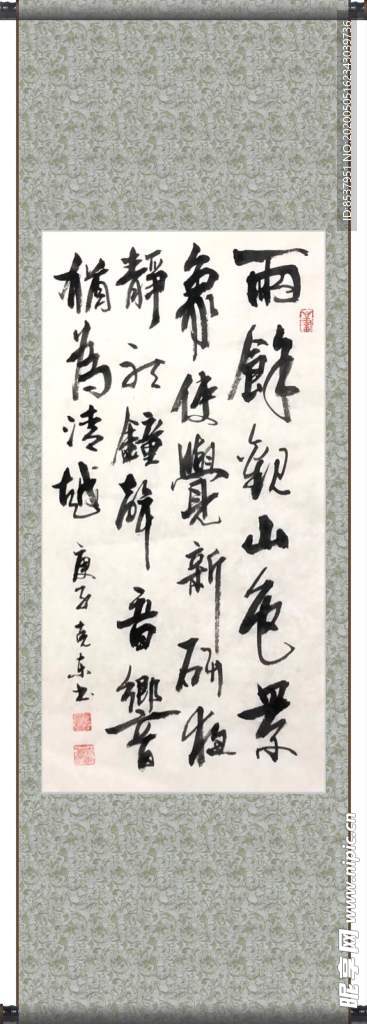 雨餘觀山色景
象便覺新研夜
靜听鐘聲音響
猶為清越
庚子克东书
ID:8537951 NO:20200505162343039736
昵享网 www.nipic.cn